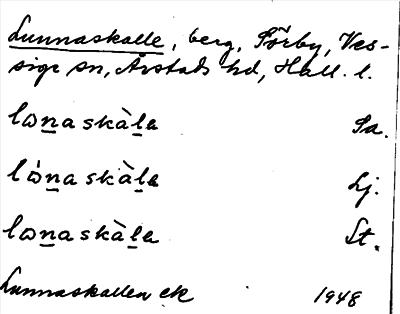 Lunnaskalle, berg, Törby, Ves-
sige sn, Årstads hd, Hall. l.
lɷnaskàla Pa.
lɷ́naskàla Lj.
lɷnaskàla St.
Lunnaskallen ek 1948